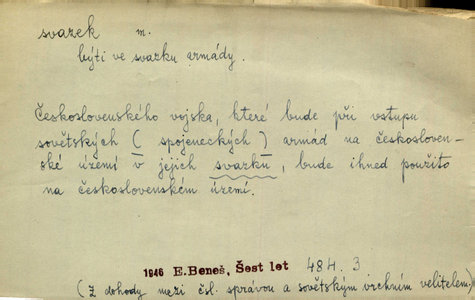 svazek m.
býti ve svazku armády.
Československého vojska, které bude při vstupu
sovětských (spojeneckých) armád na českosloven-
ské území v jejich svazku, bude ihned použito
na československém území.
1946 E. Beneš, Šest let 484.3
(Z dohody mezi čsl. správou a sovětským vrchním velitelem)